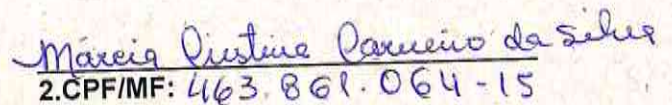 Márcia Cristina Carneiro da Silva
2.CPF/MF: 463.861.064-15